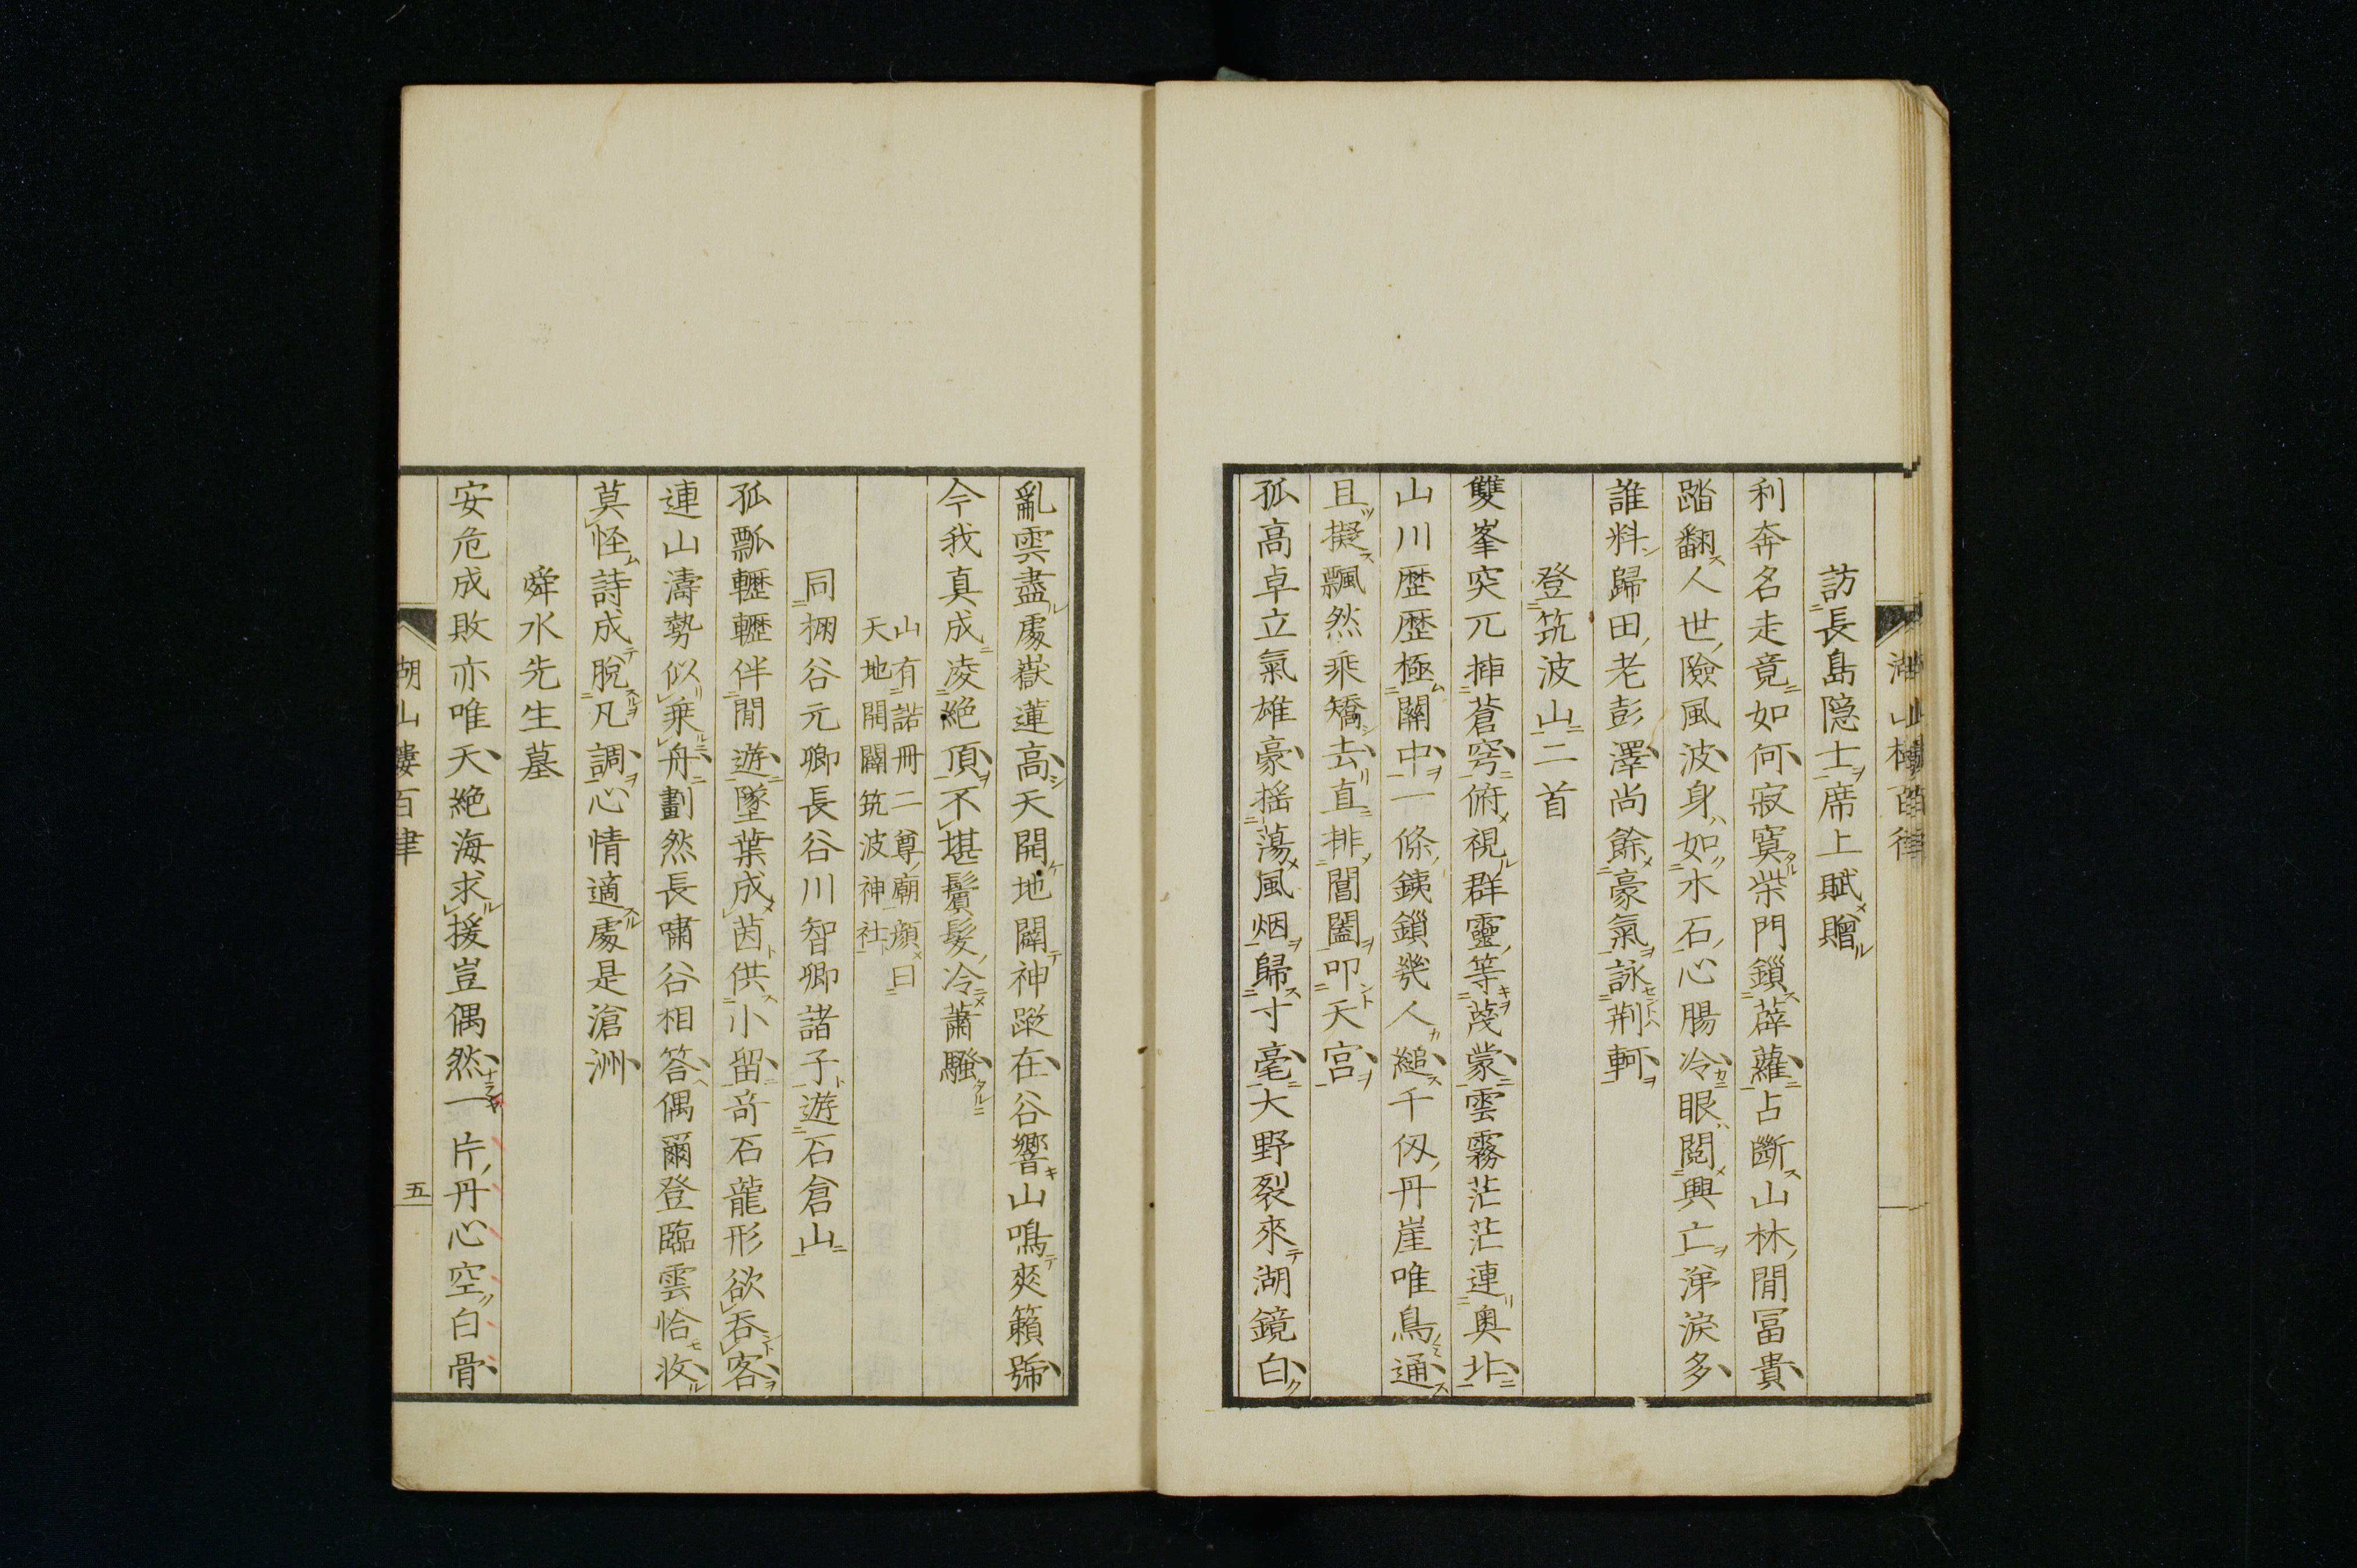 湖山樓百律
訪長島隠士席上賦贈
利奔名走竟如何寂寞柴門鎖薜蘿占斷山林閒冨貴
踏翻人世險風波身如木石心腸冷眼閲興亡涕淚多
誰料歸田老彭澤尚餘豪氣詠荆軻
登筑波山二首
雙峯突兀揷蒼穹俯視群靈等蔑蒙雲霧茫茫連奥北
山川歴歴極關中一條銕鎖幾人縋千仭丹崖唯鳥通
且擬飄然乘矯去直排閶闔叩天宮
孤高卓立氣雄豪揺蕩風烟歸寸毫大野裂來湖鏡白
亂雲盡處嶽蓮高天開地闢神蹤在谷響山鳴爽籟號
今我真成凌絶頂不堪鬢髮冷蕭騷
山有諾冊二尊廟顔曰
天地開闢筑波神社
同栩谷元卿長谷川智卿諸子遊石倉山
孤瓢轣轣伴閒遊墜葉成茵供小留奇石龍形欲呑客
連山濤勢似乗舟劃然長嘯谷相答偶爾登臨雲恰收
莫怪詩成脱凡調心情適處是滄洲
舜水先生墓
安危成敗亦唯天絶海求援豈偶然一片丹心空白骨
湖山樓百律
五